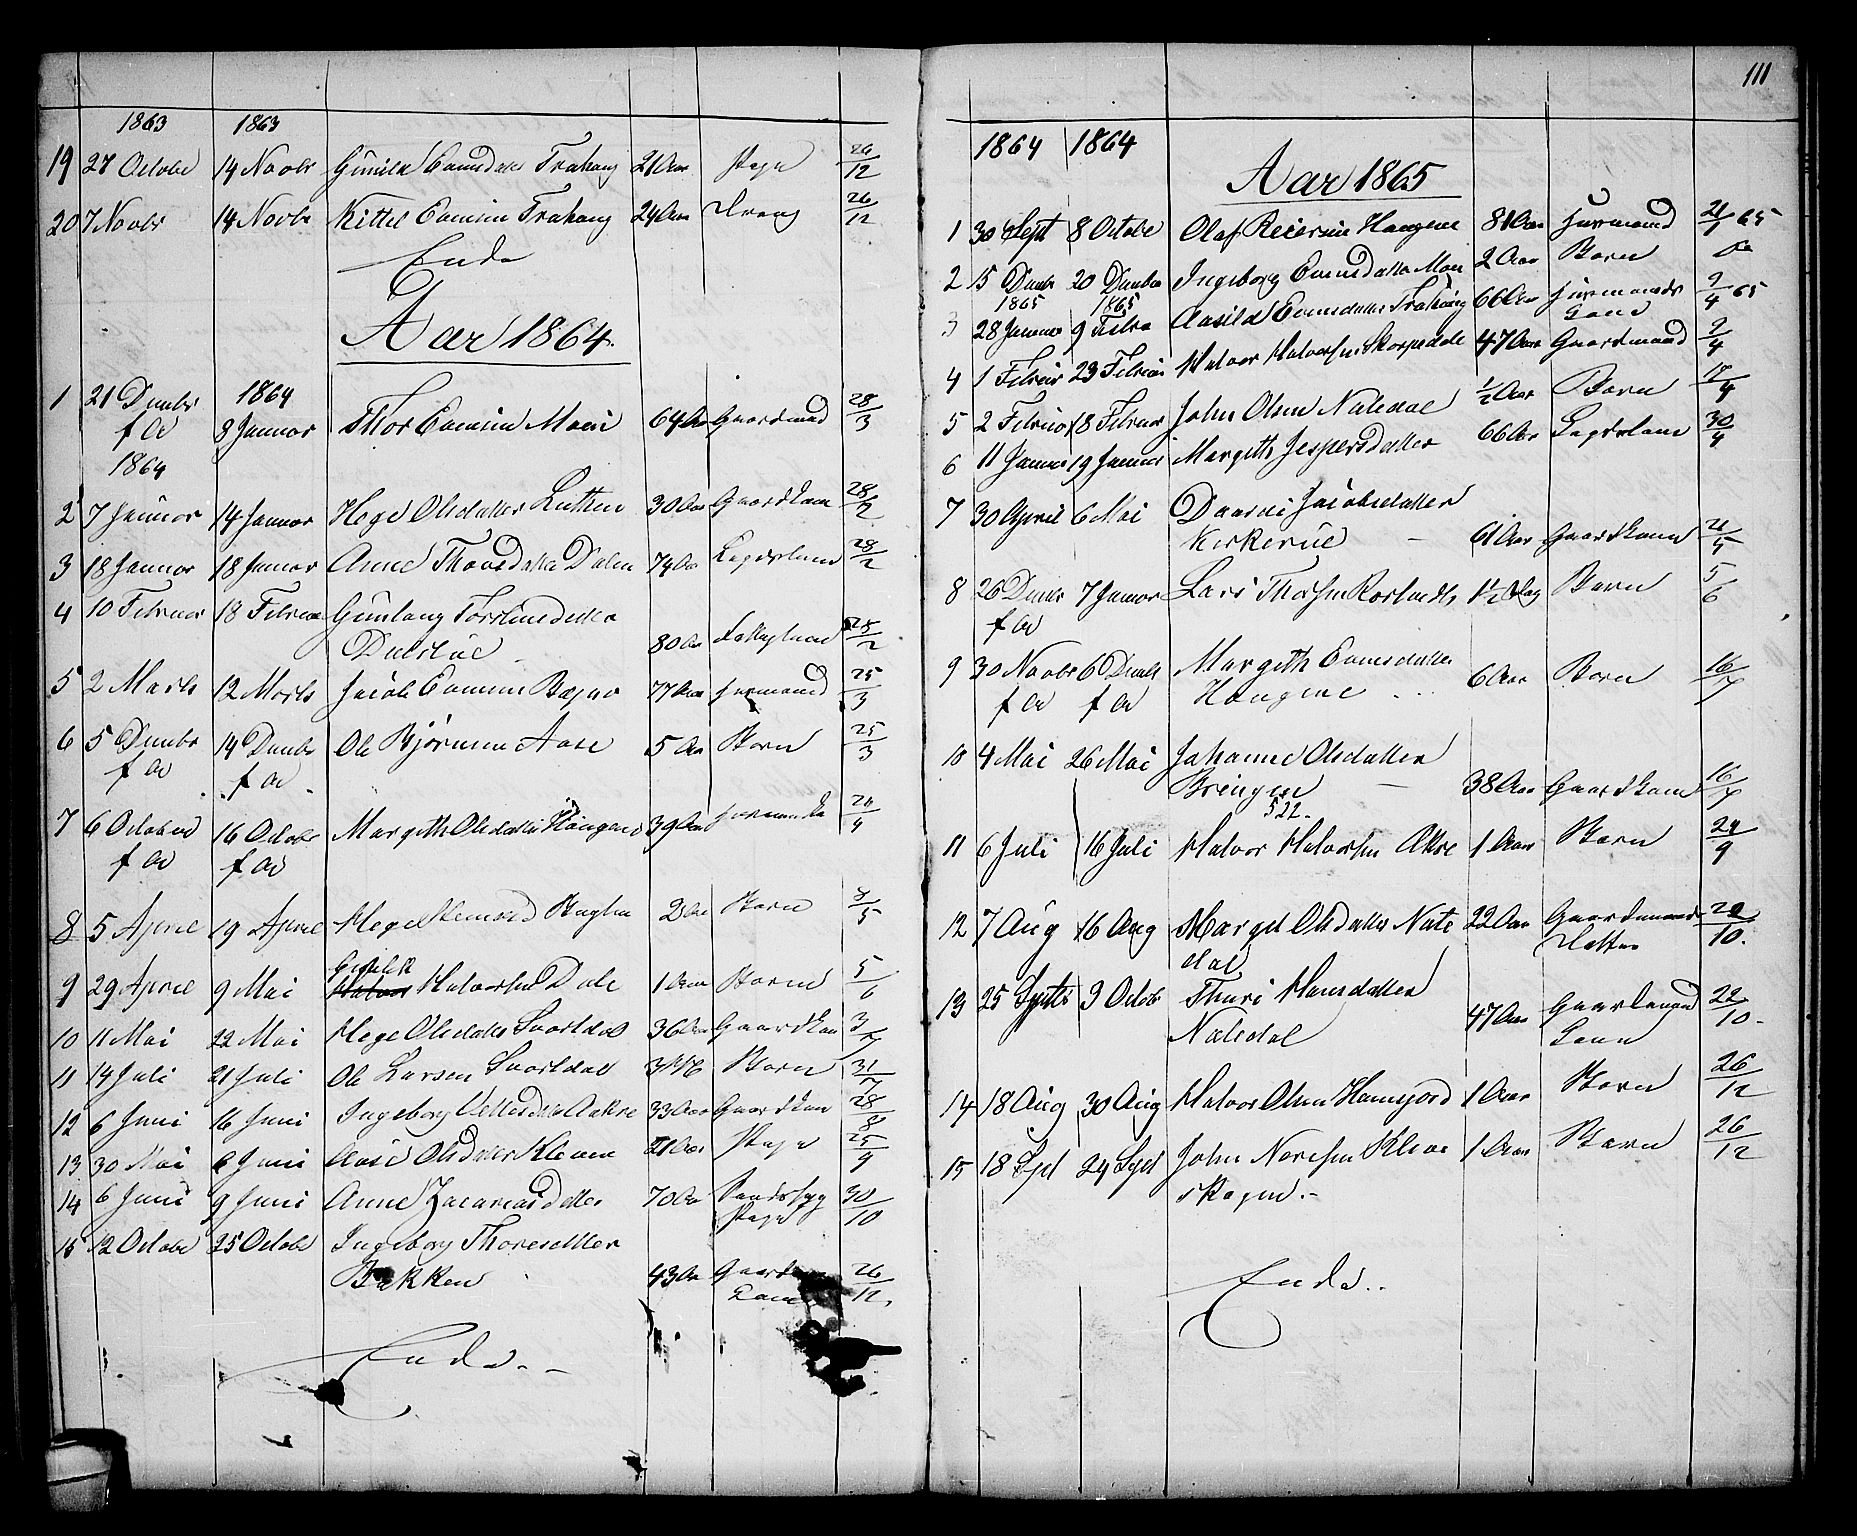 1863 1863
19 27 Octobr 14 Novbr Gunild Evensdatter Trahaug 21 Aar Pige 26/12
20 7 Novbr 14 Novbr Kittel Evensen Trahaug 24 Aar Dreng 26/12
Ende
Aar 1864.
1 21 Decmbr 1864
f A 8 Januar Thor Evensen Moen 64 Aar Gaardmand 28/3
1864
2 7 Januar 14 Januar Hege Olsdatter 30 Aar Gaardkone 28/2
3 18 Januar 18 Januar Anne Thovsdatter Dalen 74 Aar Lægdslem 28/2
4 10 Februar 18 Februar Gunlaug
80 Aar 28/2
5 2 Marts 12 Marts Jacob Evensen 77 Aar Huusmand 25/3
6 5 Decmbr 14 Decmbr Ole Bjørnsen Aase 5 Aar Barn 25/3
f A f A
7 6 Octobr 16 Octobr Margith Olsdatter Haugene 39 Aar
f A f A
8 5 April 19 April Hege 2 Aar Barn 8/5
9 29 April 9 Mai Halvor Halvorsen Dale 1 Aar Barn 5/6
10 11 Mai 22 Mai Hege Olsdatter Svartdal 36 Aar Gaardkone 3/7
11 14 Juli 21 Juli Ole Larsen Svartdal Barn 31/7
12 6 Juni 16 Juni Ingeborg Aakre 33 Aar Gaardkone 28/8
13 30 Mai 6 Juni Aase Olsdatter Kleven 21 Aar Pige 25/9
14 6 Juni 9 Juni Anne Zacariasdatter 70 Aar 30/10
Pige
15 12 Octobr 25 Octobr Ingeborg Thoresdatter
Bakken 43 Aar Gaardm 26/12.
Kone
Ende. –
111
1864 1864
Aar 1865
1 30 Sept 8 Octobr Olaf Reiersen Haugene 81 Aar Huusmand 21/1 65
2 15 Decmbr 20 Decmbr Ingeborg Evensdatter Moen 2 Aar Barn do
1865 1865
3 28 Januar 9 Febru Aasild Evensdatter Trahaug 66 Aar Huusmands 2/4 65
Kone
4 1 Februar 23 Februar Halvor Halvorsen Skorpedale 47 Aar Gaardmand 2/4
5 2 Februar 18 Februar John Olsen Natedal 1/2 Aar Barn 17/4
6 11 Januar 19 Januar Margith Jespersdatter 66 Aar Lægdslem 30/4
7 30 April 6 Mai Jacobsdatter
Kirkerue – 61 Aar Gaardkone 21/5
8 26 Decmbr 7 Januar Lars 1 1/2 Dag Barn 5/6
f A
9 30 Novbr 6 Decmbr Margith Evensdatter
f A f A Haugene 6 Aar Barn 16/7
10 4 Mai 26 Mai Johanne Olsdatter
Bringen – 38 Aar Gaardkone 16/7
522.
11 6 Juli 16 Juli Halvor Halvorsen Akre 1 Aar Barn 24/9
12 7 Aug 16 Aug Margit Olsdatter Nate 22 Aar Gaardmands 22/10.
dal Datter
13 25 Septbr 3 Octobr Thuri Hansdatter
Natedal 47 Aar Gaardmand 22/10.
Kone
14 18 Aug 30 Aug Halvor Olsen 1 Aar Barn 26/12
15 18 Sept 24 Sept John 1 Aar Barn 26/12
skogen. –
Ende..